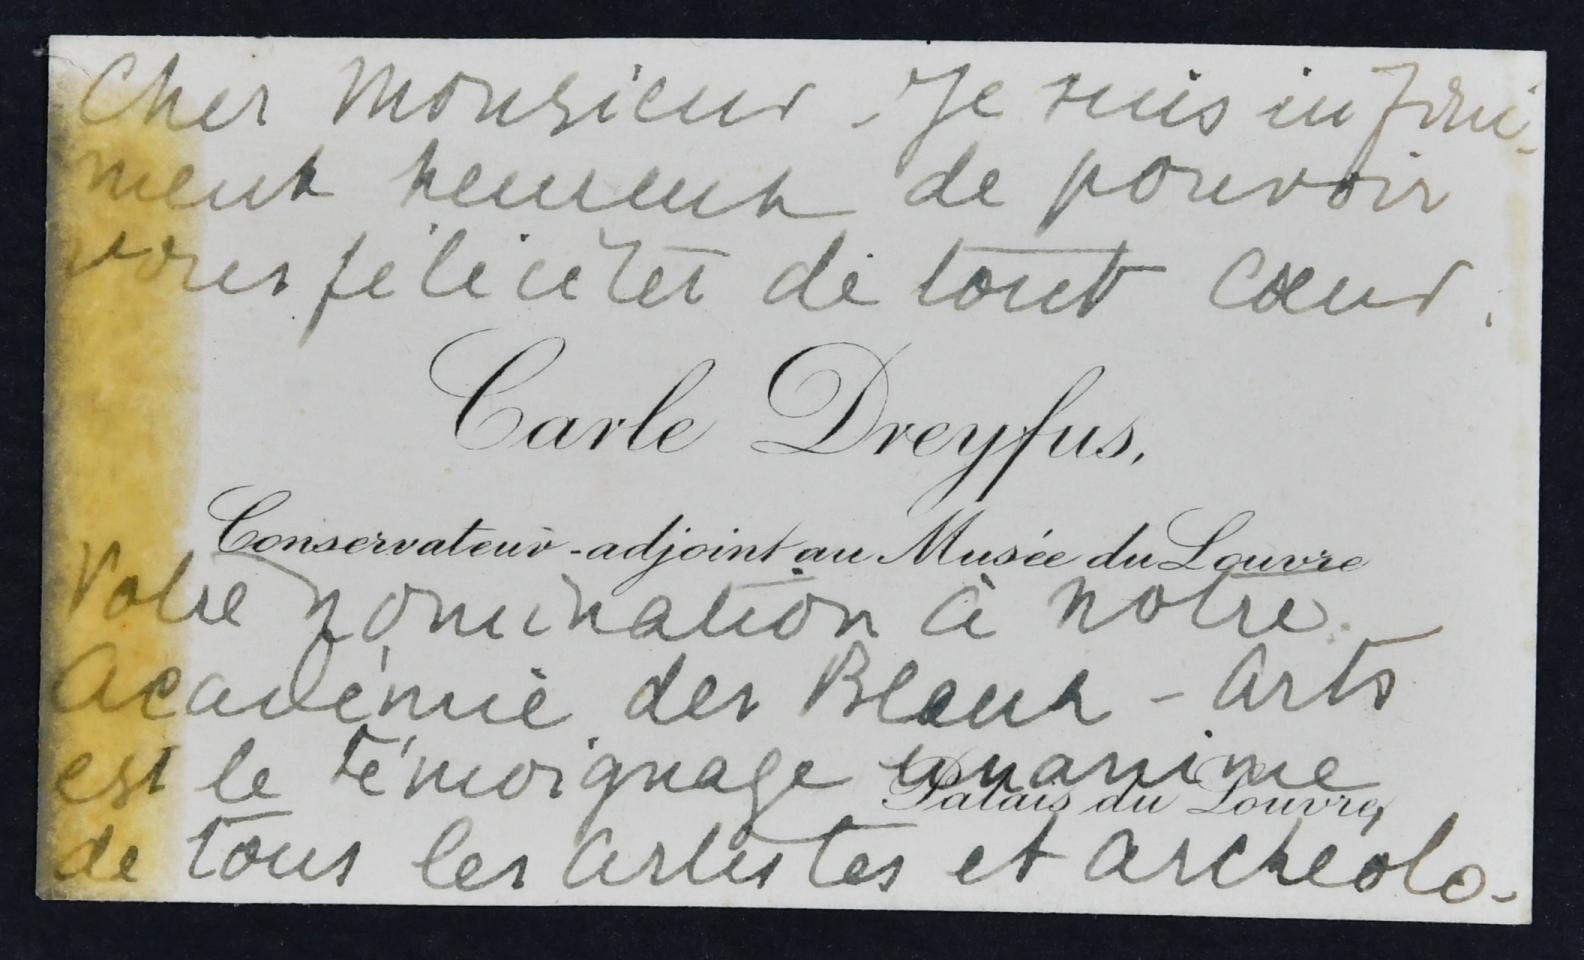 Cher Monsieur. Je suis infini-
ment heureux de pouvoir
vous féliciter de tout cœur.
Carle Dreyfus,
Conservateur-adjoint au Musée du Louvre
Votre nomination à notre
Académie des Beaux-Arts
est le témoignage unanime
Palais du Louvre,
de tous les artistes et archeolo-